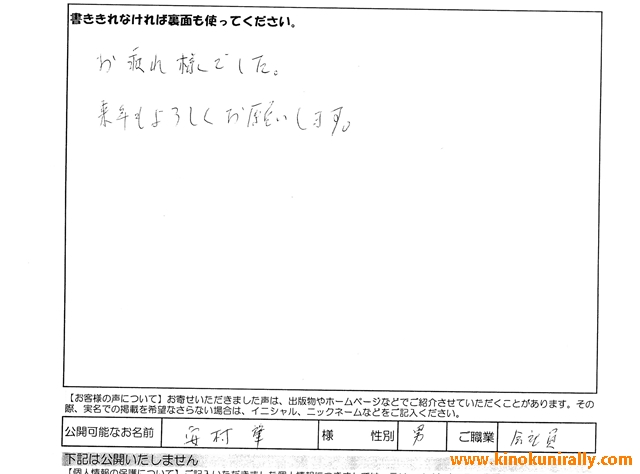 書ききれなければ裏面も使ってください。
お疲れ様でした。
来年もよろしくお願いします。
【お客様の声について】お寄せいただきました声は、出版物やホームページなどでご紹介させていただくことがあります。その
際、実名での掲載を希望なさらない場合は、イニシャル、ニックネームなどをご記入ください。
公開可能なお名前 村 様 性別 男 ご職業 会社員
www.kinokunirally.com
下記は公開いたしません
【個人情報の保護について】